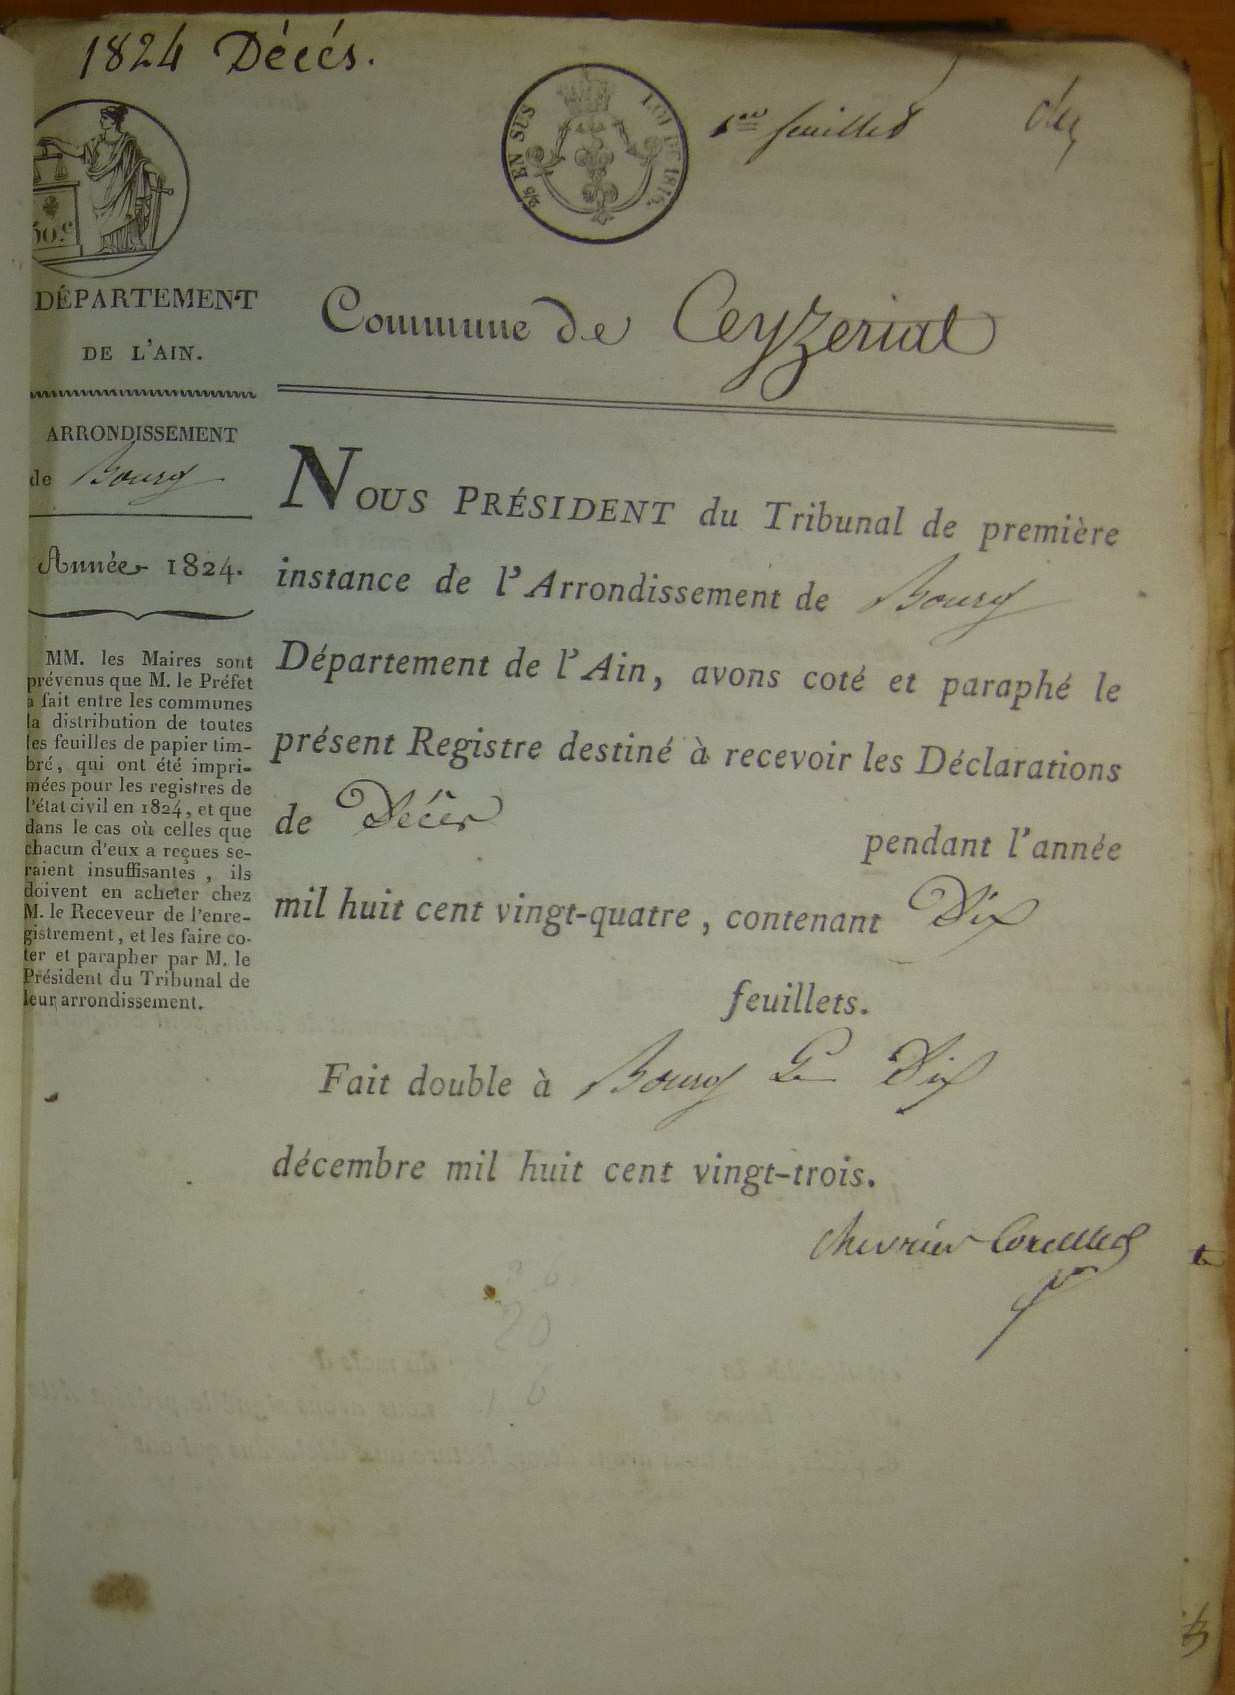 1824 Décés.
2/5 EN SUS
LOI DE 1816.
1er feuillet
50.c
DÉPARTEMENT
DE L'AIN.
ARRONDISSEMENT
de Bourg
Année 1824.
MM. les Maires sont
prévenus que M. le Préfet
a fait entre les communes
la distribution de toutes
les feuilles de papier tim-
bré, qui ont été impri-
mées pour les registres de
l'état civil en 1824, et que
dans le cas où celles que
chacun d'eux a reçues se-
raient insuffisantes, ils
doivent en acheter chez
M. le Receveur de l'enre-
gistrement, et les faire co-
ter et parapher par M. le
Président du Tribunal de
leur arrondissement.
Commune de Ceyzeriat
NOUS PRÉSIDENT du Tribunal de première
instance de l'Arrondissement de Bourg
Département de l'Ain, avons coté et paraphé le
présent Registre destiné à recevoir les Déclarations
de Décès pendant l'année
mil huit cent vingt-quatre, contenant Dix
feuillets.
Fait double à Bourg Le Dix
décembre mil huit cent vingt-trois.
Chevrier Corcelles